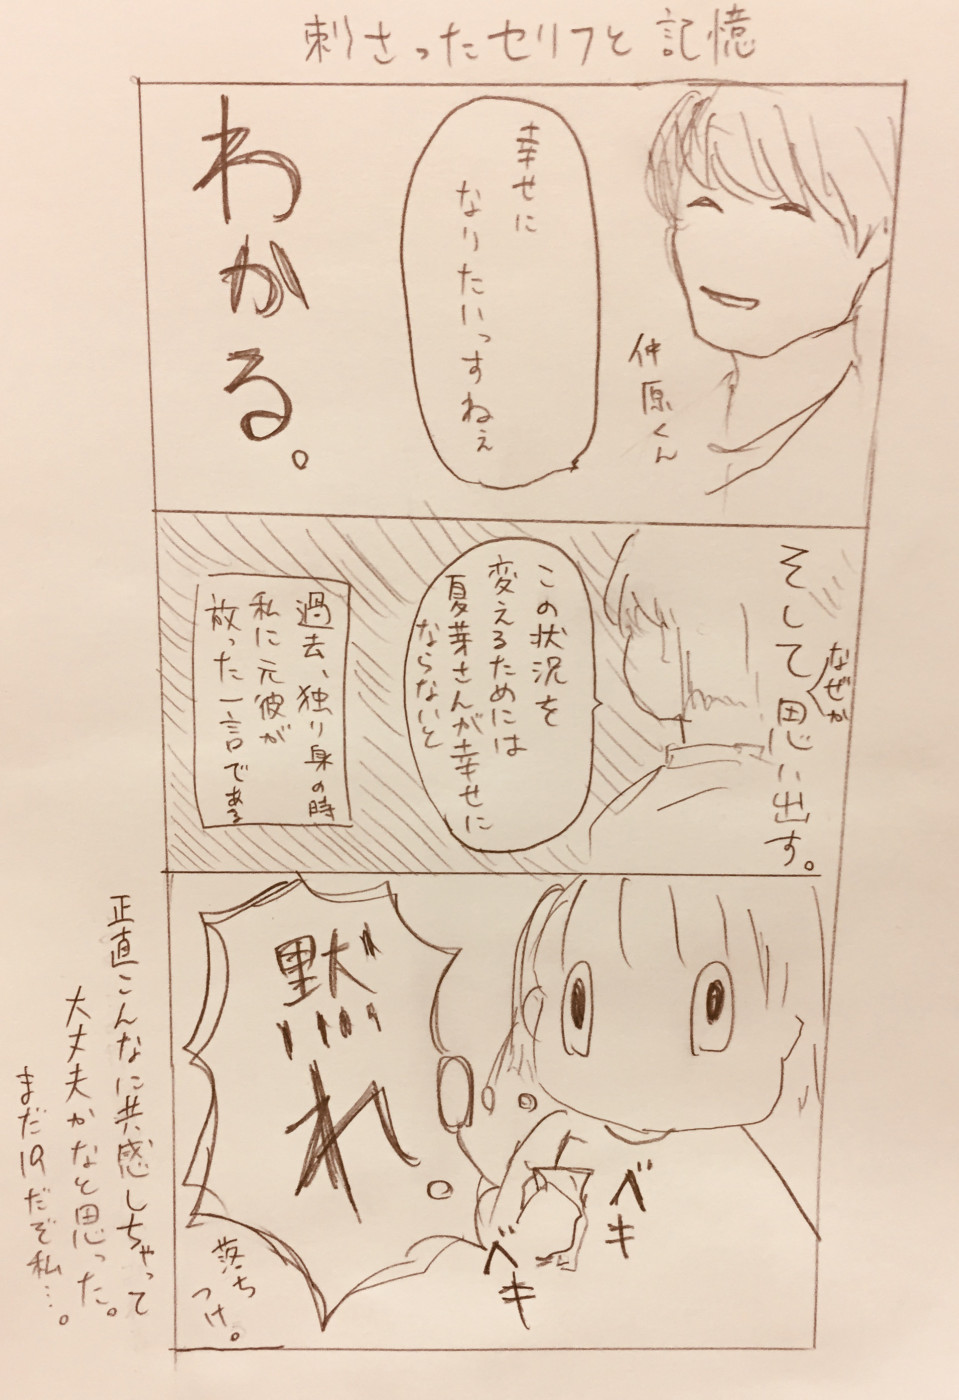 刺さったセリフと記憶
仲原くん
幸せに
なりたいっすねぇ
わかる。
そして思い出す。
なぜか
この状況を
変えるためには
夏芽さんが幸せに
ならないと
過去、独り身の時
私に元彼が
放った一言である
黙れ
ベキ
ベキ
落ち
つけ。
正直こんなに共感しちゃって
大丈夫かなと思った。
まだ19だぞ私…。